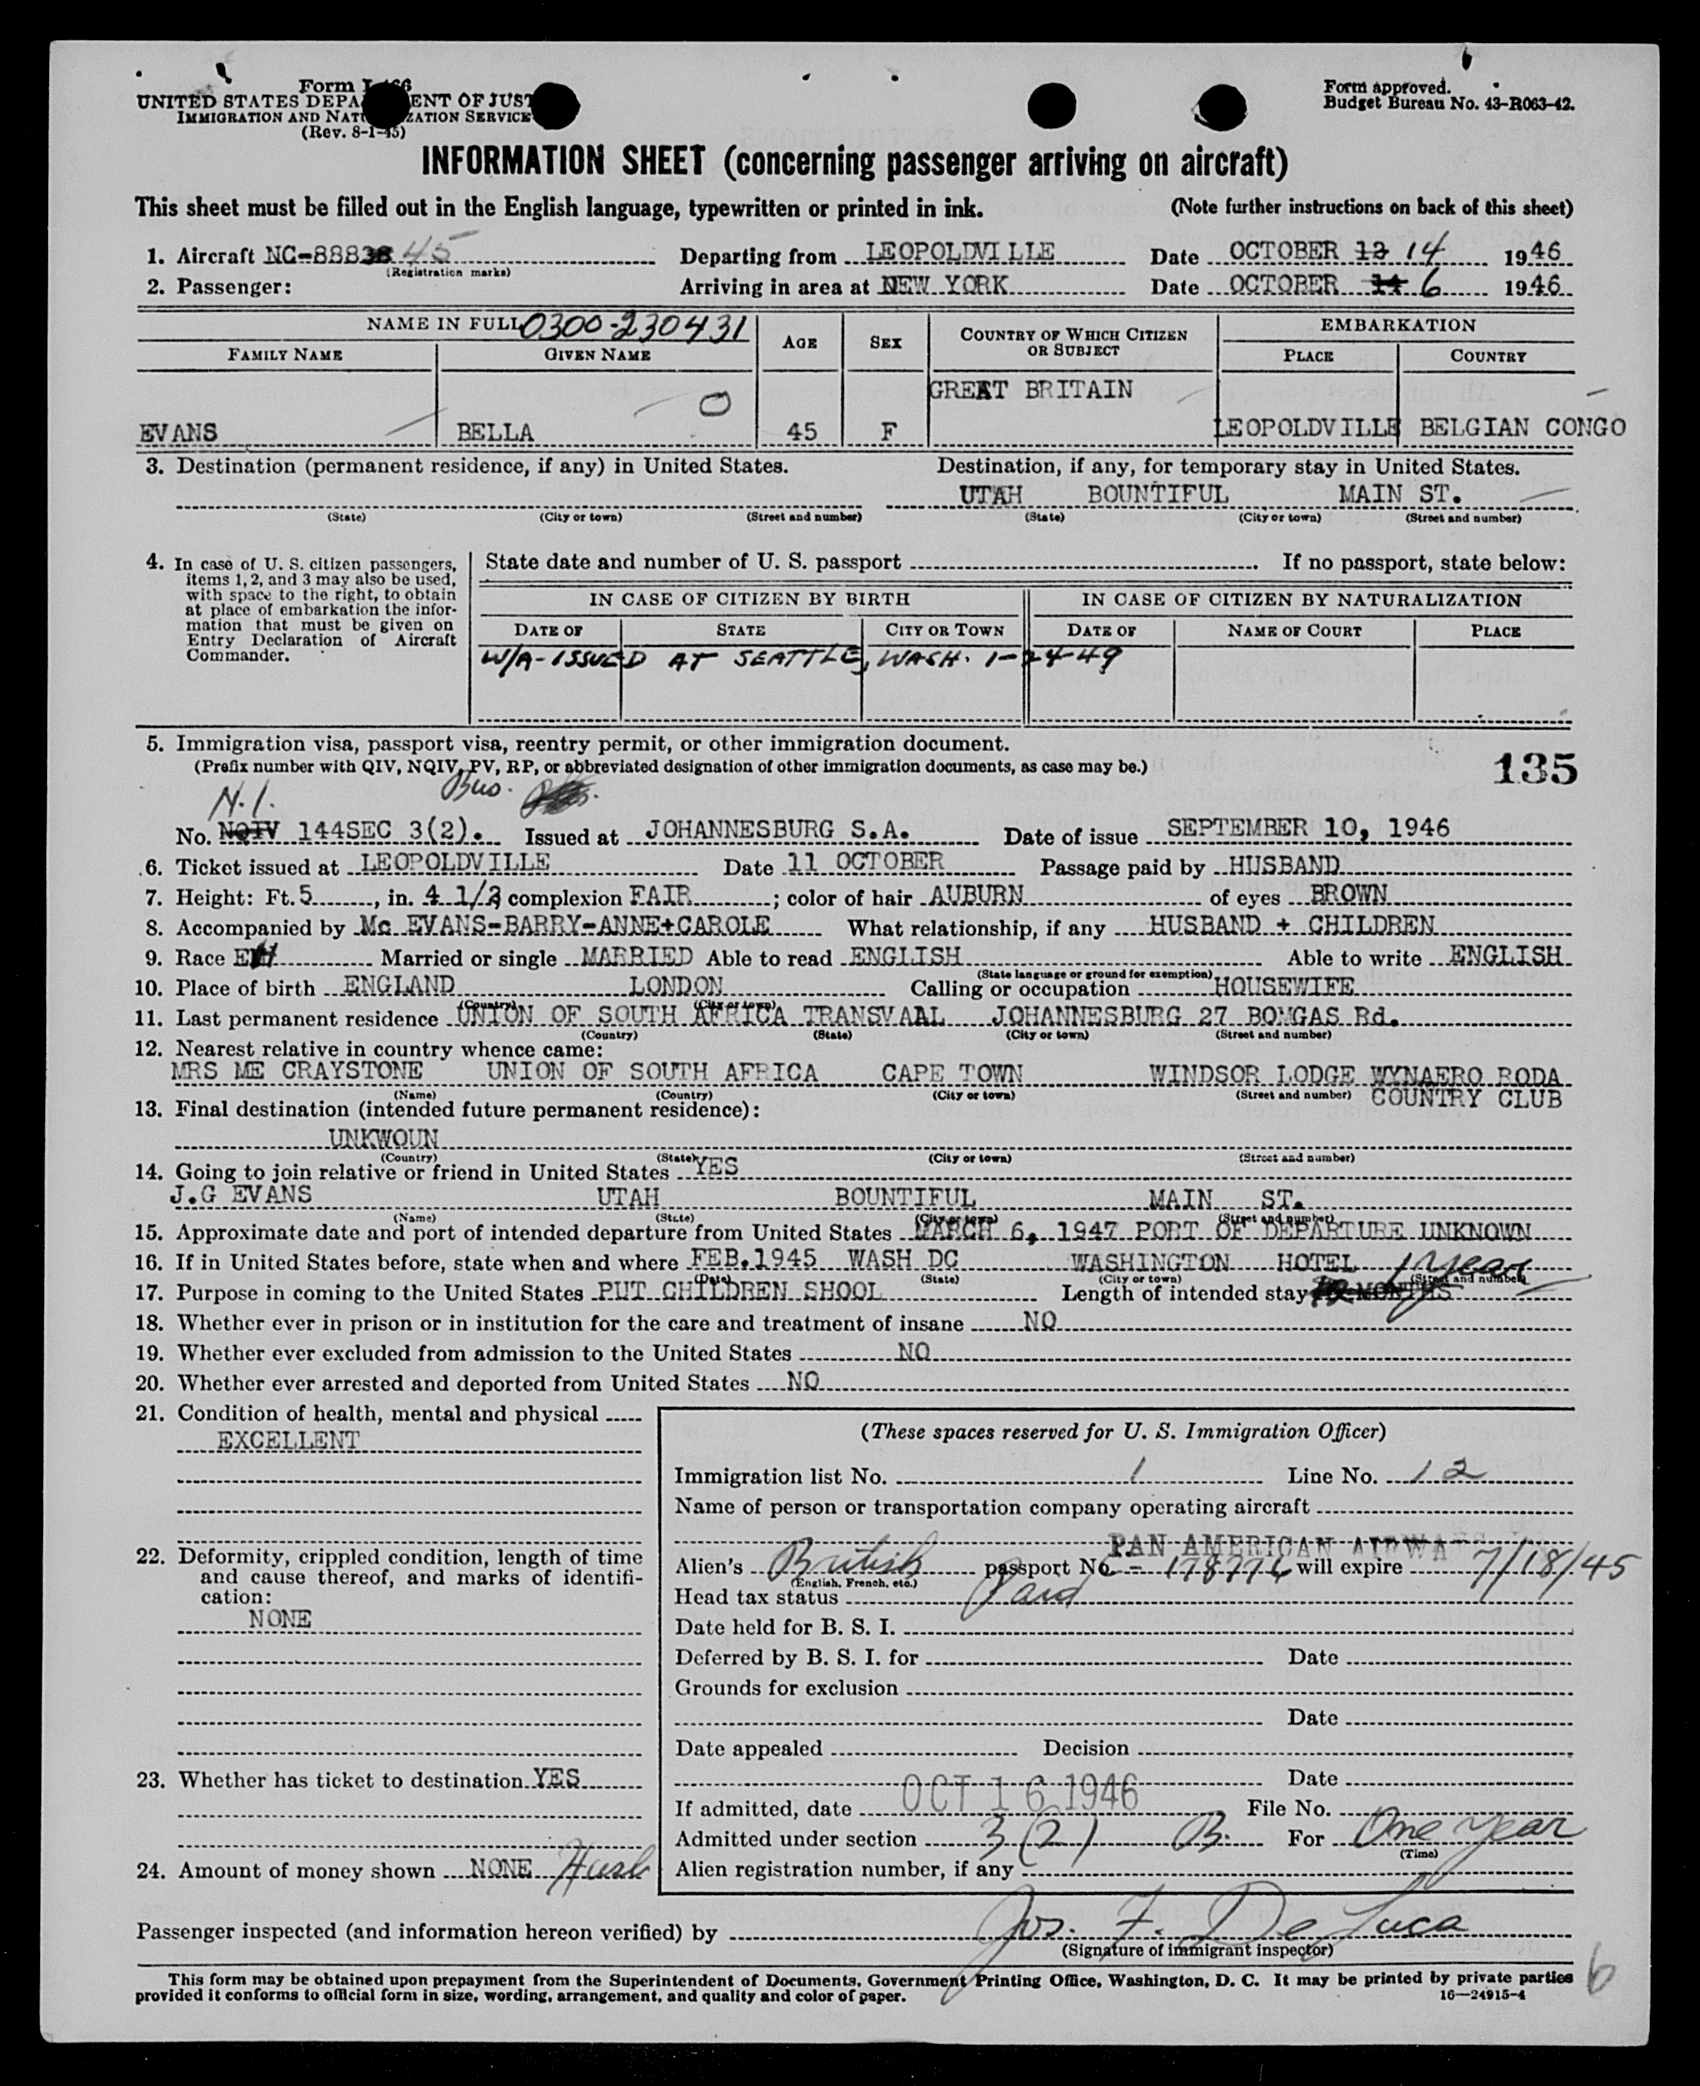 Form I-466
UNITED STATES DEPARTMENT OF JUSTICE
IMMIGRATION AND NATURALIZATION SERVICE
(Rev. 8-1-45)
Form approved.
Budget Bureau No. 43-R063-42.
INFORMATION SHEET (concerning passenger arriving on aircraft)
This sheet must be filled out in the English language, typewritten or printed in ink. (Note further instructions on back of this sheet)
1. Aircraft NC-88838 45 Departing from LEOPOLDVILLE Date OCTOBER 13 14 1946
(Registration marks)
2. Passenger: Arriving in area at NEW YORK Date OCTOBER 14 6 1946
NAME IN FULL 0300-230431 AGE SEX COUNTRY OF WHICH CITIZEN OR SUBJECT EMBARKATION
FAMILY NAME GIVEN NAME PLACE COUNTRY
GREAT BRITAIN
EVANS BELLA 45 F LEOPOLDVILLE BELGIAN CONGO
3. Destination (permanent residence, if any) in United States. Destination, if any, for temporary stay in United States.
UTAH BOUNTIFUL MAIN ST.
(State) (City or town) (Street and number) (State) (City or town) (Street and number)
4. In case of U. S. citizen passengers, items 1, 2, and 3 may also be used, with space to the right, to obtain at place of embarkation the information that must be given on Entry Declaration of Aircraft Commander.
State date and number of U. S. passport If no passport, state below:
IN CASE OF CITIZEN BY BIRTH IN CASE OF CITIZEN BY NATURALIZATION
DATE OF STATE CITY OR TOWN DATE OF NAME OF COURT PLACE
W/A-ISSUED AT SEATTLE, WASH. 1-24-49
5. Immigration visa, passport visa, reentry permit, or other immigration document.
(Prefix number with QIV, NQIV, PV, RP, or abbreviated designation of other immigration documents, as case may be.)
135
N.I. Bus.
No. NQIV 144SEC 3(2). Issued at JOHANNESBURG S.A. Date of issue SEPTEMBER 10, 1946
6. Ticket issued at LEOPOLDVILLE Date 11 OCTOBER Passage paid by HUSBAND
7. Height: Ft. 5, in. 4 1/2 complexion FAIR; color of hair AUBURN of eyes BROWN
8. Accompanied by Mc EVANS-BARRY-ANNE+CAROLE What relationship, if any HUSBAND + CHILDREN
9. Race Married or single MARRIED Able to read ENGLISH Able to write ENGLISH
(State language or ground for exemption)
10. Place of birth ENGLAND LONDON Calling or occupation HOUSEWIFE
(Country) (City or town)
11. Last permanent residence UNION OF SOUTH AFRICA TRANSVAAL JOHANNESBURG 27 BOMGAS Rd.
(Country) (State) (City or town) (Street and number)
12. Nearest relative in country whence came:
MRS ME CRAYSTONE UNION OF SOUTH AFRICA CAPE TOWN WINDSOR LODGE WYNAERO RODA
(Name) (Country) (City or town) (Street and number) COUNTRY CLUB
13. Final destination (intended future permanent residence):
UNKWOUN
(Country) (State) (City or town) (Street and number)
14. Going to join relative or friend in United States YES
J.G EVANS UTAH BOUNTIFUL MAIN ST.
(Name) (State) (City or town) (Street and number)
15. Approximate date and port of intended departure from United States MARCH 6, 1947 PORT OF DEPARTURE UNKNOWN
16. If in United States before, state when and where FEB.1945 WASH DC WASHINGTON HOTEL
(Date) (State) (City or town) (Street and number)
1 year
17. Purpose in coming to the United States PUT CHILDREN SHOOL Length of intended stay MONTHS
18. Whether ever in prison or in institution for the care and treatment of insane NO
19. Whether ever excluded from admission to the United States NO
20. Whether ever arrested and deported from United States NO
21. Condition of health, mental and physical
EXCELLENT
22. Deformity, crippled condition, length of time and cause thereof, and marks of identification:
NONE
23. Whether has ticket to destination YES
24. Amount of money shown NONE Husb
(These spaces reserved for U. S. Immigration Officer)
Immigration list No. 1 Line No. 12
Name of person or transportation company operating aircraft
PAN AMERICAN AIRWAYS
Alien's British passport No C - 178776 will expire 7/18/45
(English, French, etc.)
Head tax status Paid
Date held for B. S. I.
Deferred by B. S. I. for Date
Grounds for exclusion
Date
Date appealed Decision
Date
If admitted, date OCT 16 1946 File No.
Admitted under section 3(2) B. For One year
(Time)
Alien registration number, if any
Passenger inspected (and information hereon verified) by Jos. F. De Luca
(Signature of immigrant inspector)
This form may be obtained upon prepayment from the Superintendent of Documents, Government Printing Office, Washington, D. C. It may be printed by private parties
provided it conforms to official form in size, wording, arrangement, and quality and color of paper. 16—24915-4
6